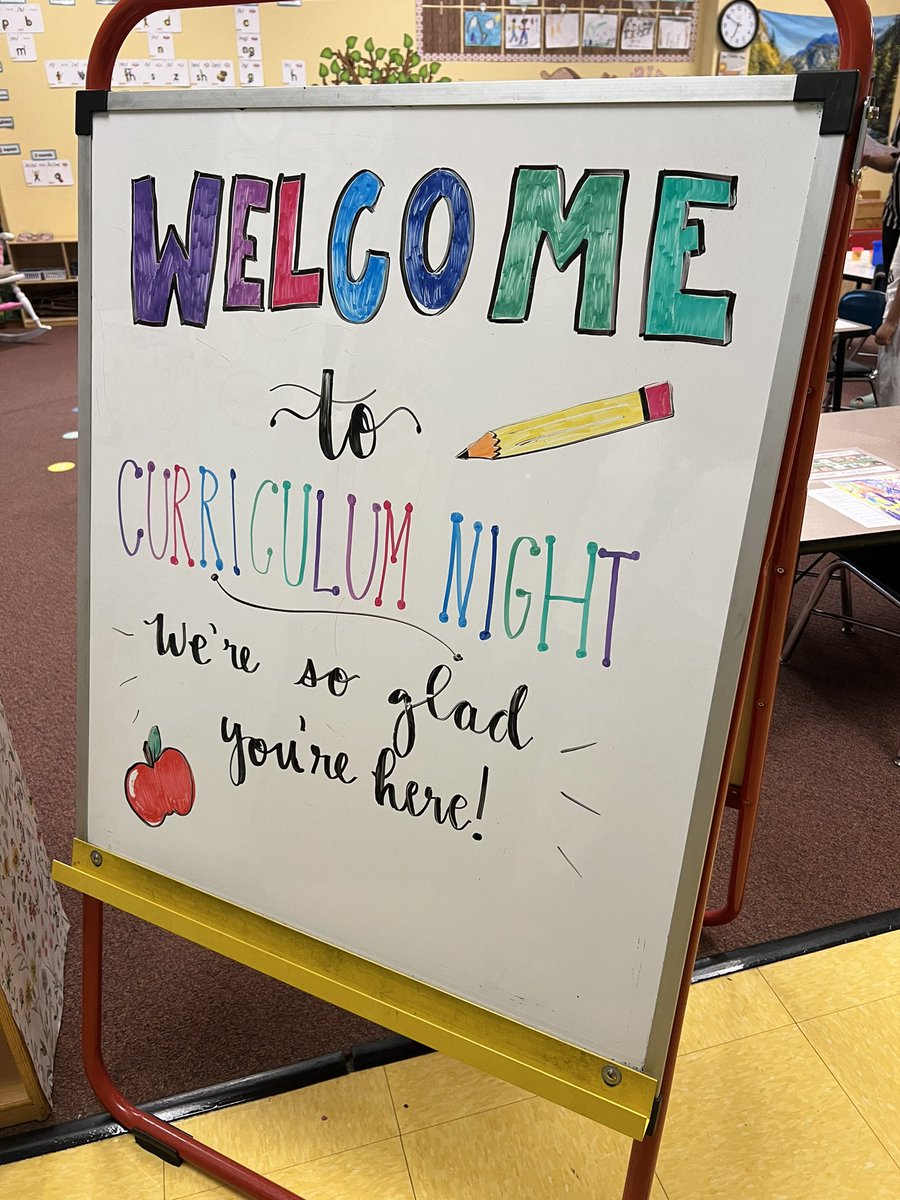 p
b
d
g
m
th
s
z
sh
h
WELCOME
to
CURRICULUM NIGHT
We're so glad
you're here!